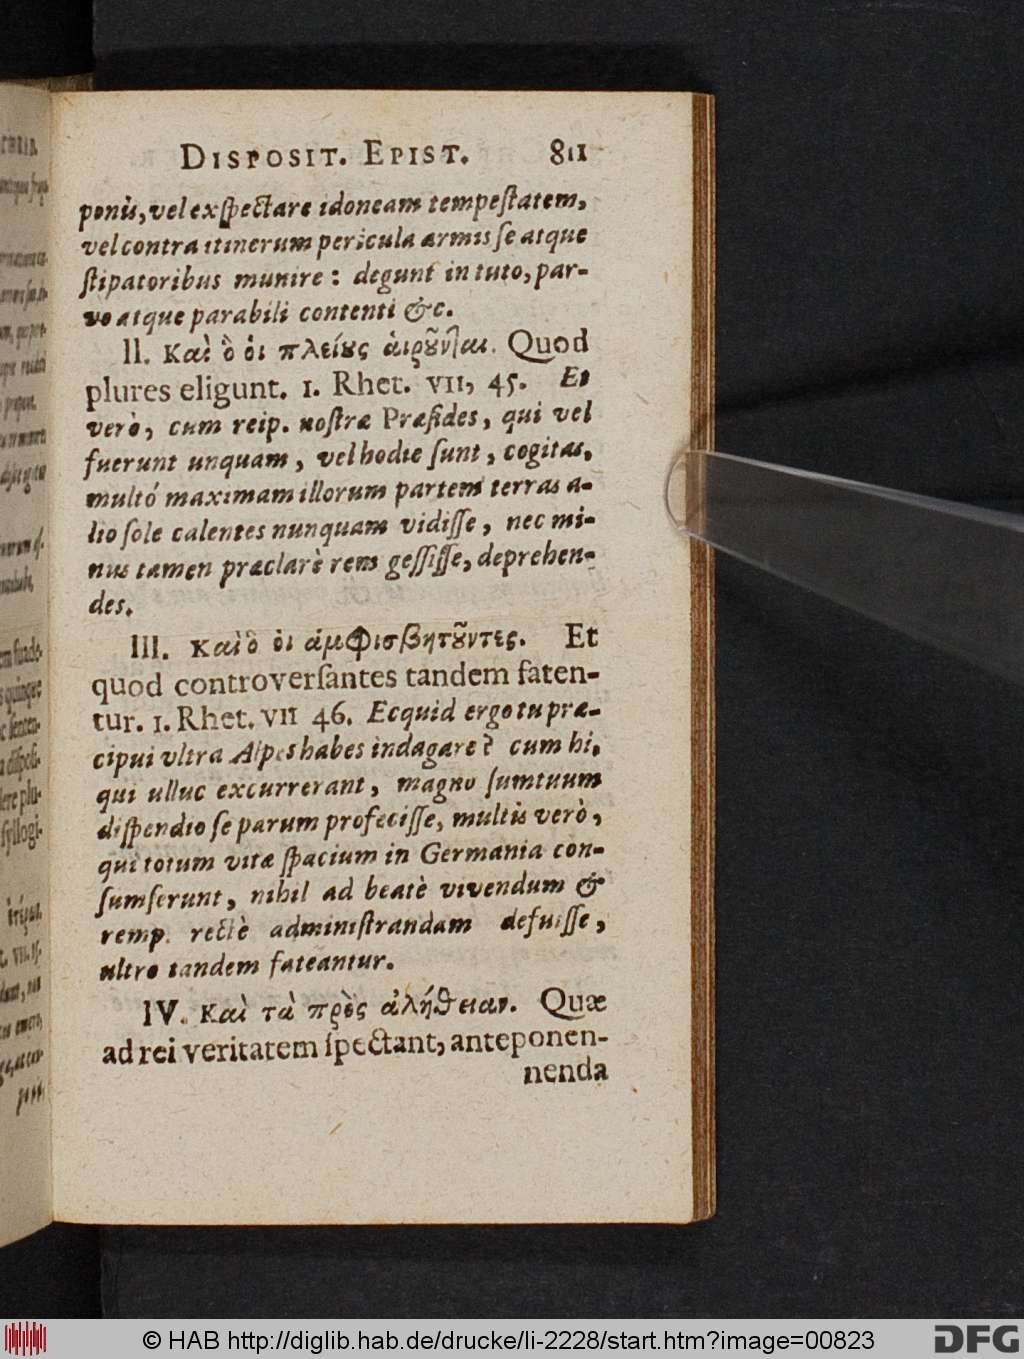 DISPOSIT. EPIST. 811
ponis, vel exſpectare idoneam tempeſtatem,
vel contra itinerum pericula armis ſe atque
ſtipatoribus munire: degunt in tuto, par-
vo atque parabili contenti &c.
II. Καὶ ὃ ὁι πλείȣς ἁιρȣ͂νται. Quod
plures eligunt. 1. Rhet. VII, 45. Et
verò, cum reip. noſtræ Præſides, qui vel
fuerunt unquam, vel hodie ſunt, cogitas,
multó maximam illorum partem terras a-
lio ſole calentes nunquam vidiſſe, nec mi-
nus tamen præclarè rem geſſiſſe, deprehen-
des.
III. Καὶ ὃ ὁι ἀμφισβητȣ͂ντες. Et
quod controverſantes tandem faten-
tur. 1. Rhet. VII 46. Ecquid ergo tu præ-
cipui ultra Alpes habes indagare? cum hi,
qui illuc excurrerant, magno ſumtuum
diſpendio ſe parum profeciſſe, multis verò,
qui totum vitæ ſpacium in Germania con-
ſumſerunt, nihil ad beatè vivendum &
remp. rectè adminiſtrandam defuiſſe,
ultro tandem fateantur.
IV. Καὶ τὰ πρὸς ἀλήθειαν. Quæ
ad rei veritatem ſpectant, anteponen-
nenda
© HAB http://diglib.hab.de/drucke/li-2228/start.htm?image=00823
DFG